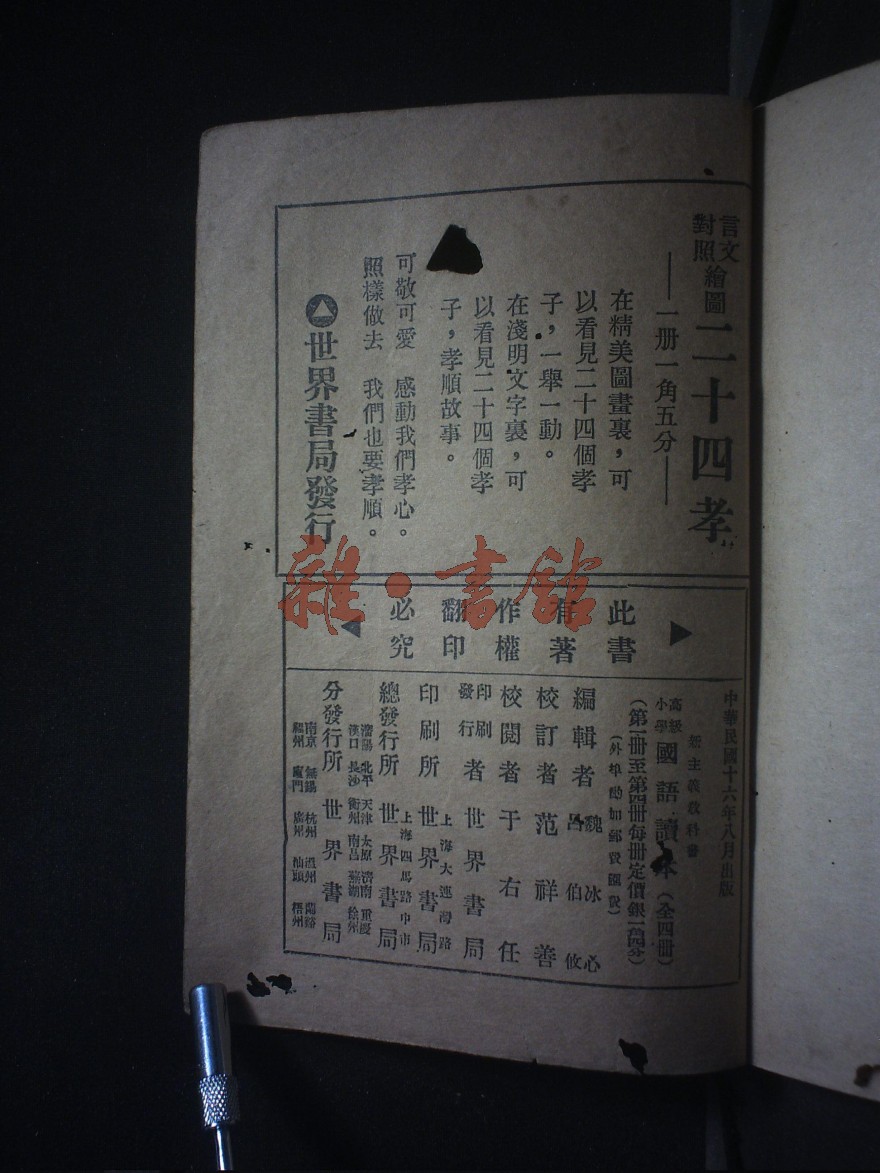 言文
對照
繪圖
二十四孝
一册一角五分
在精美圖畫裏，可
以看見二十四個孝
子，一舉一動。
在淺明文字裏，可
以看見二十四個孝
子，孝順故事。
可敬可愛　感動我們孝心。
照樣做去　我們也要孝順。
世界書局發行
此書
有著
作權
翻印
必究
中華民國十六年八月出版
新主義教科書
高級
小學
國語讀本（全四冊）
（第一冊至第四冊每冊定價銀一角四分）
（外埠酌加郵費匯費）
編輯者 魏冰心
呂伯攸
校訂者 范祥善
校閱者 于右任
印刷
發行
者 世界書局
印刷所 上海大連灣路
世界書局
總發行所 上海四馬路中市
世界書局
瀋陽 北平 天津 太原 濟南 重慶
漢口 長沙 衡州 南昌 蕪湖 徐州
分發行所 世界書局
南京 無錫 杭州 溫州 蘭谿
福州 廈門 廣州 汕頭 梧州
雜·書館